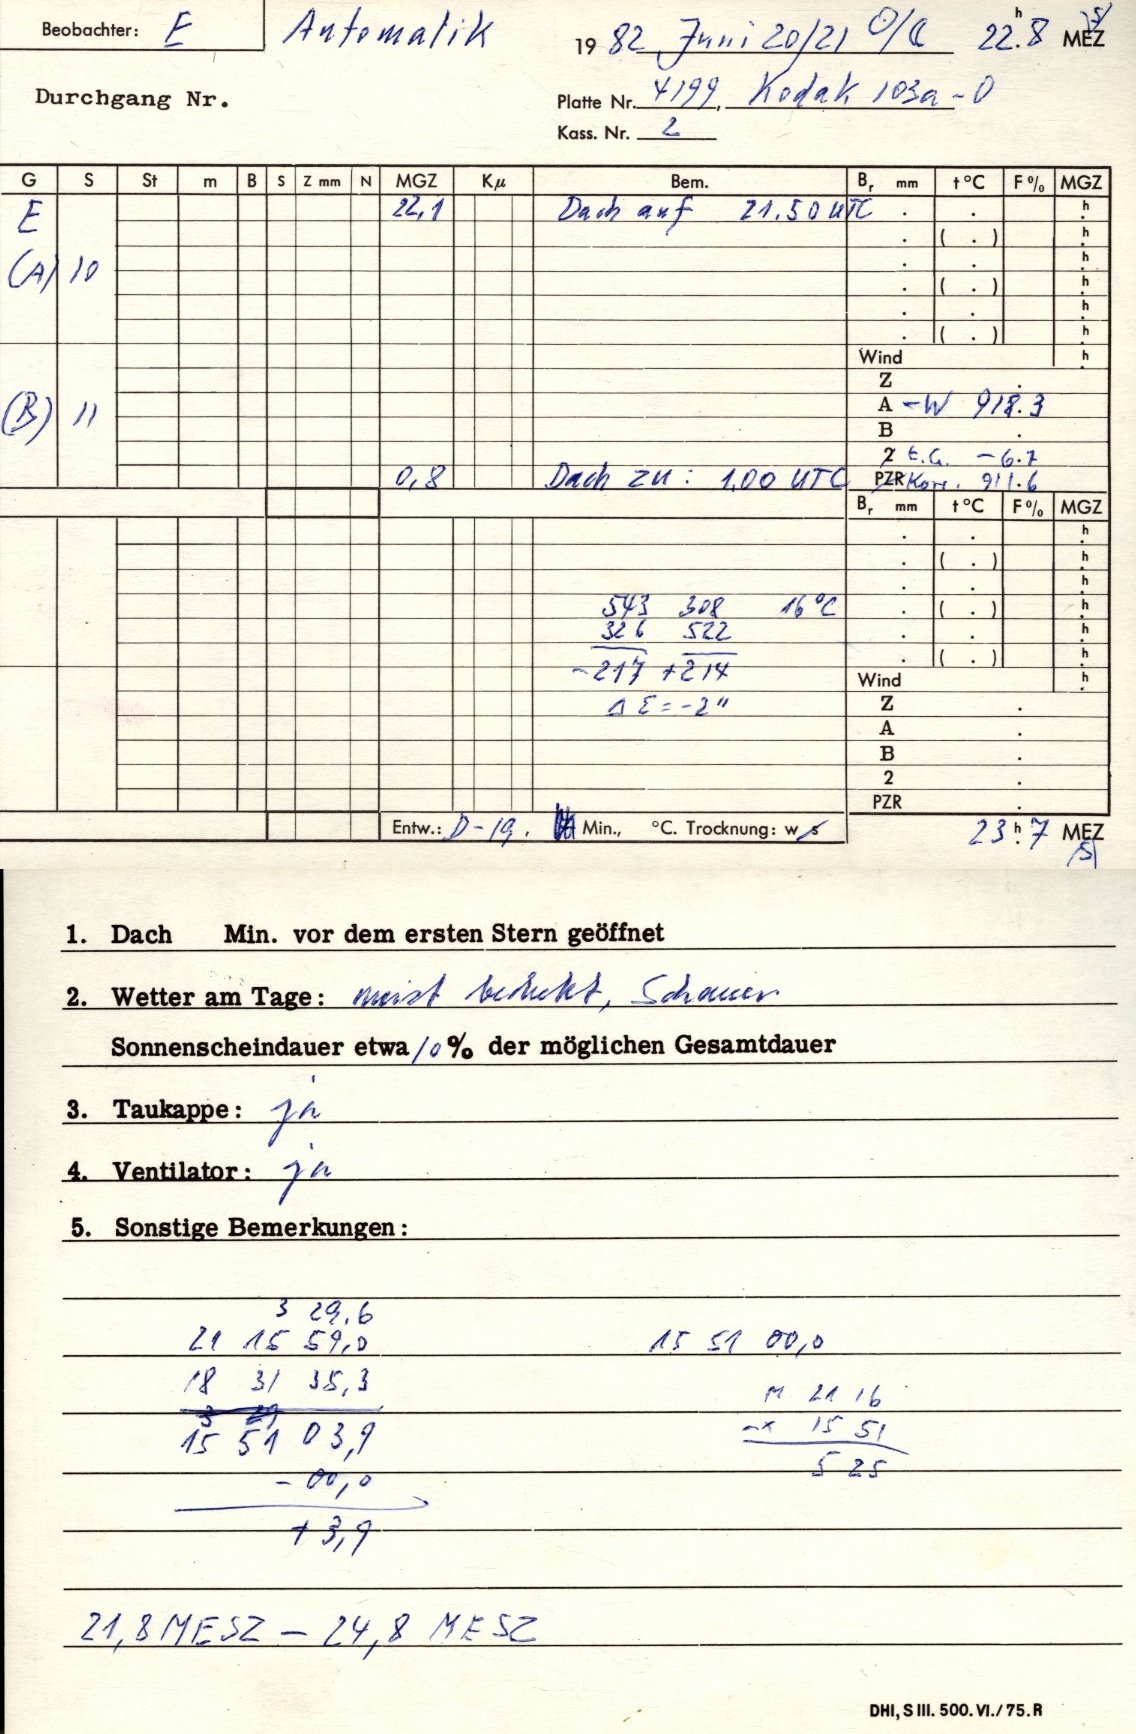 Beobachter: E Automatik 19 82 Juni 20/21 22.8 h MEZ
Durchgang Nr.
Platte Nr. 4199, Kodak 103a-O
Kass. Nr. 2
G S St m B S Z mm N MGZ Kµ Bem. Br mm t °C F % MGZ
E 22,1 Dach auf 21.50 UTC . . h
. ( . ) h
(A) 10 . . h
. ( . ) h
. . h
. ( . ) h
Wind h
Z .
(B) 11 A -W 918.3
B .
2 t.G. -6.7
0,8 Dach zu: 1.00 UTC PZR Korr. 911.6
Br mm t °C F % MGZ
. . h
. ( . ) h
. . h
543 308 16 °C . ( . ) h
326 522 . . h
-217 +214 . ( . ) h
Wind h
Δ Σ = -2" Z .
A .
B .
2 .
PZR .
Entw.: D-19. Min., °C. Trocknung: w s 23 h.7 MEZ
(S)
1. Dach Min. vor dem ersten Stern geöffnet
2. Wetter am Tage: meist bedeckt, Schauer
Sonnenscheindauer etwa 10 % der möglichen Gesamtdauer
3. Taukappe: ja
4. Ventilator: ja
5. Sonstige Bemerkungen:
3 29,6
21 15 59,0 15 51 00,0
18 31 35,3 M 21 16
15 51 03,9 15 51
- 00,0 5 25
+ 3,9
21,8 MESZ - 24,8 MESZ
DHI, S III. 500. VI./75. R